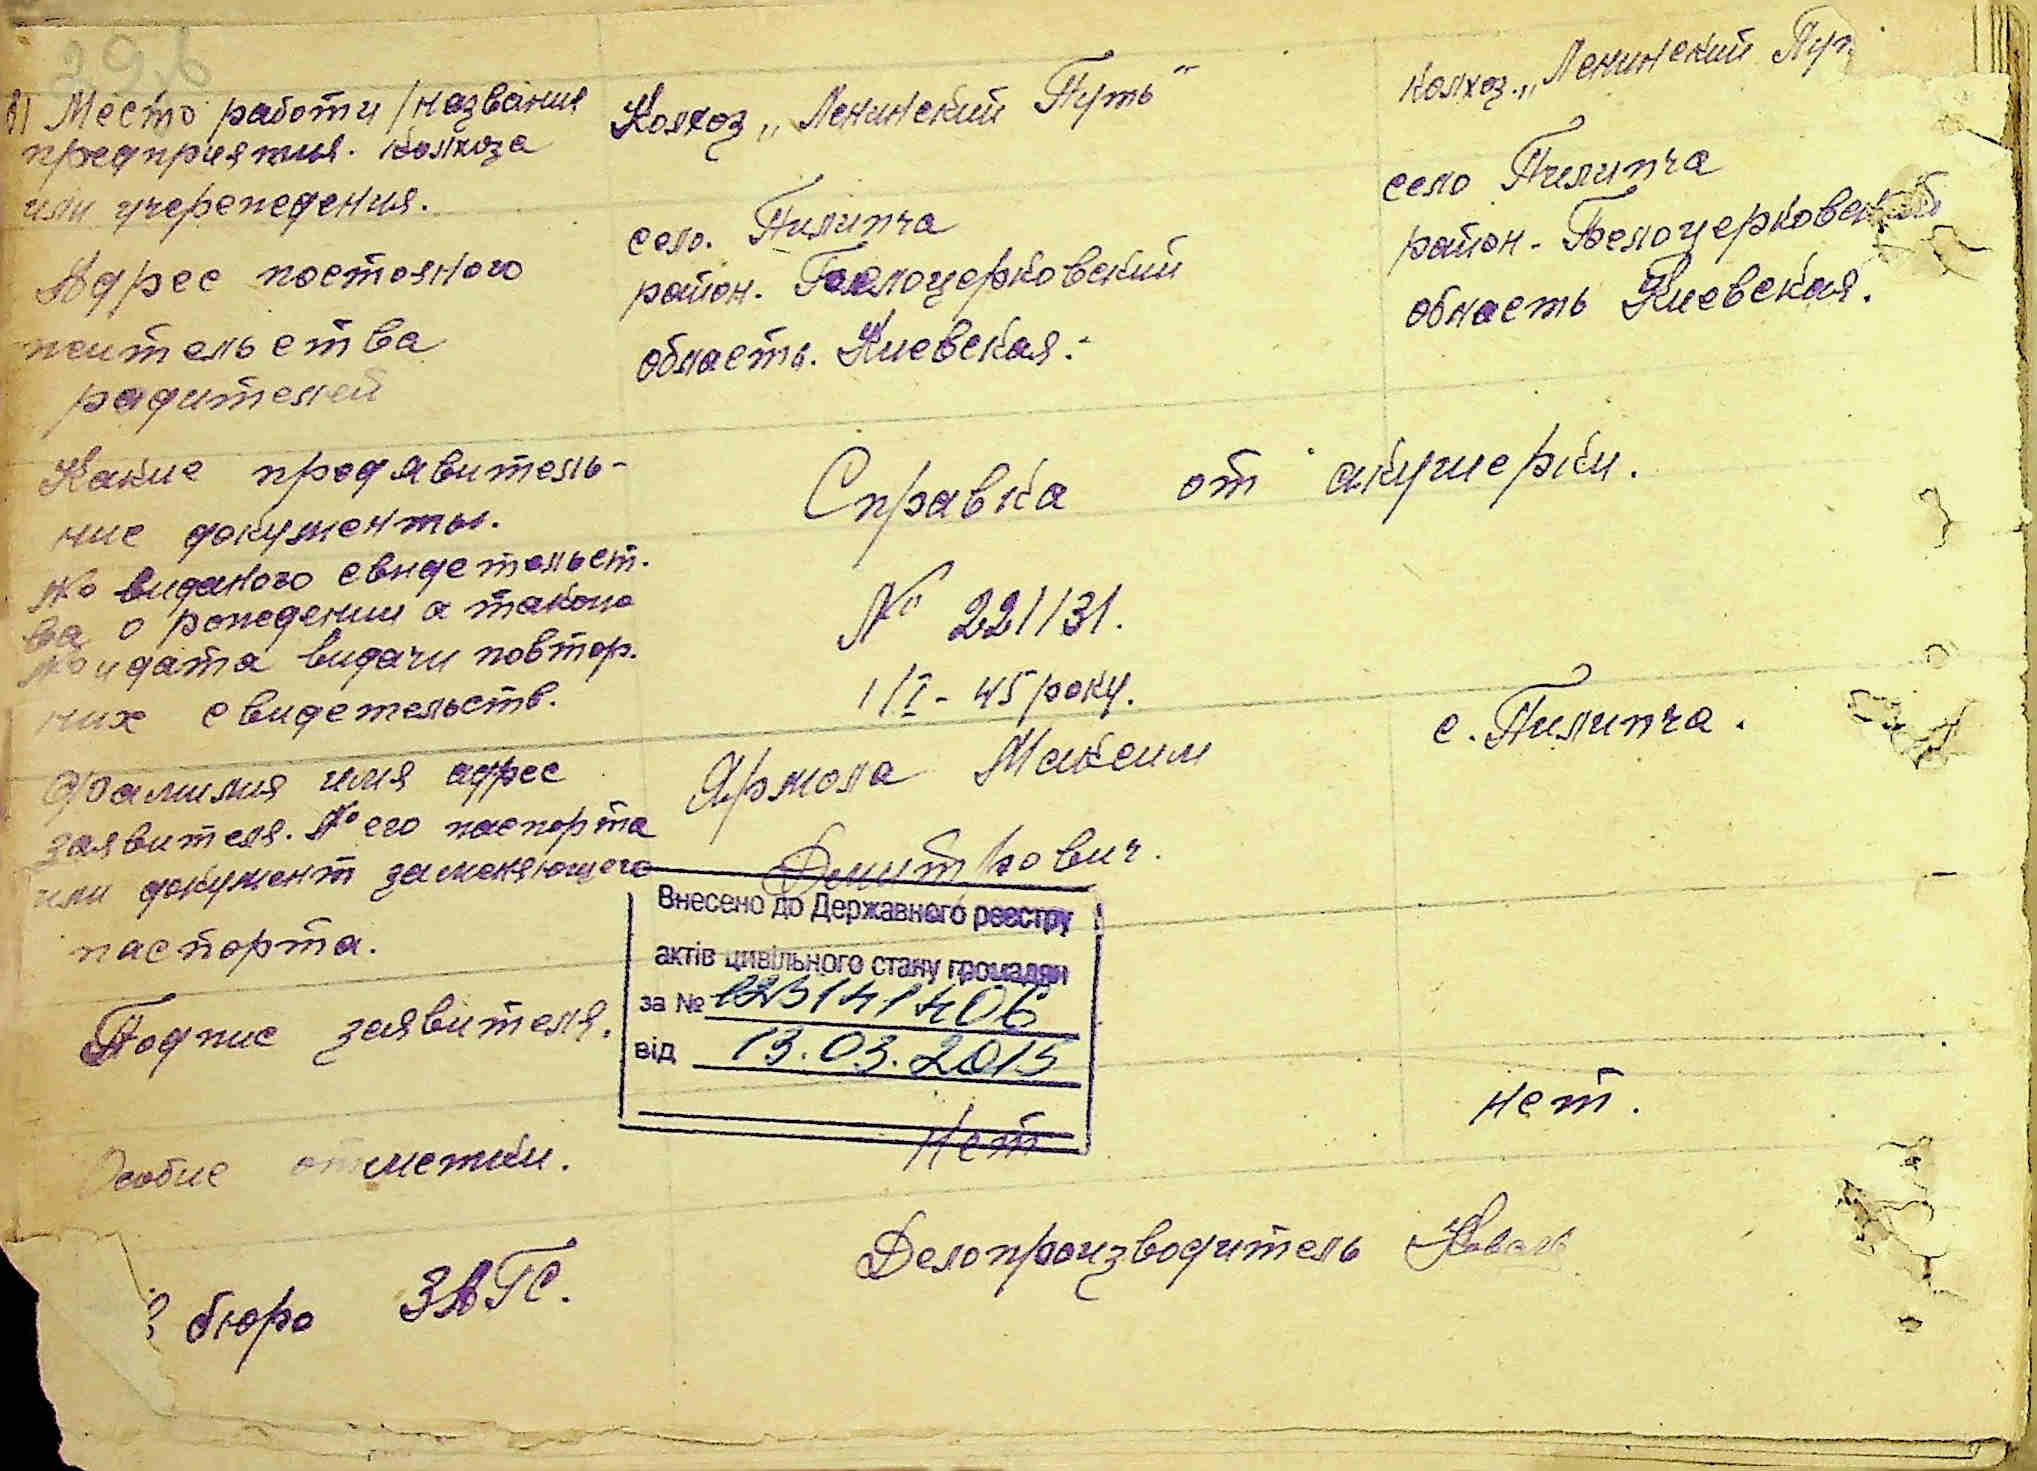 296
в) Место работи /название Колхоз „Ленинский Путь" колхоз „Ленинский Пут
предприятия. колхоза
или учереждения.
Адрес постояного село. Пилипча село Пилипча
жительства район. Белоцерковский район - Белоцерковский
радителей область. Киевская. область Киевская.
Какие предявитель- Справка от акушерки.
ние документы.
№ виданого свидетельст. № 221131.
ва о рождении а такоже
№ и дата видачи повтор. 1/I - 45 року.
них свидетельств.
Фамилия имя адрес Ярмола Максим с. Пилипча.
заявителя. № его паспорта Дмитрович.
или документ заменяющего
паспорта.
Внесено до Державного реєстру
актів цивільного стану громадян
за № 123141406
від 13.03.2015
Подпис заявителя.
Особие отметки. Нет нет.
бюро ЗАГС. Делопроизводитель Коваль